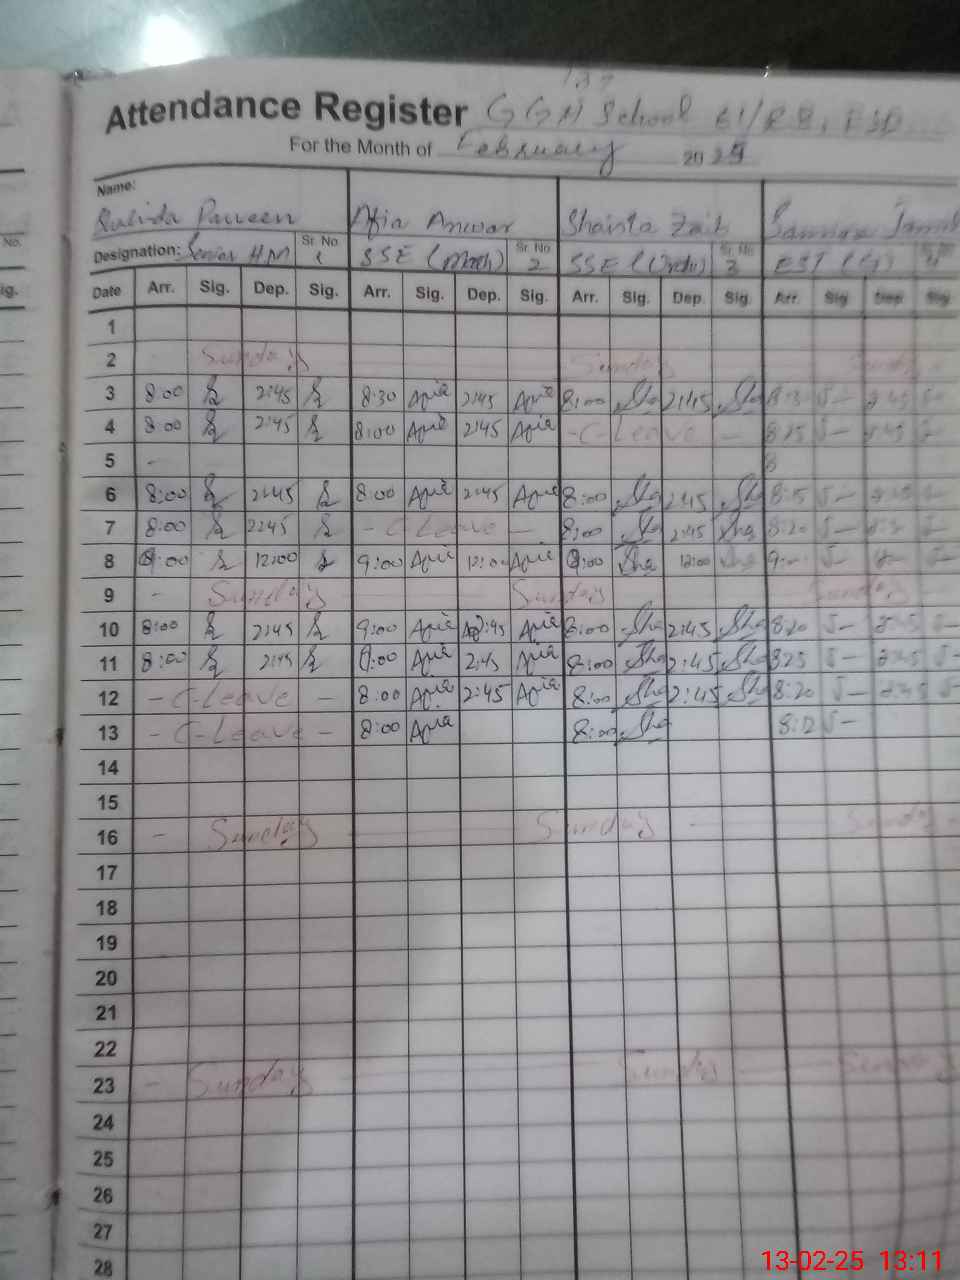 Attendance Register GGH School 61/RB, FSD
For the Month of February 2025
Name:
Parveen Afia Anwar Shaista Zaib
Designation: Senior HM Sr. No. 1 SSE (Math) Sr. No. 2 SSE (Urdu) Sr. No. 3 EST
Date Arr. Sig. Dep. Sig. Arr. Sig. Dep. Sig. Arr. Sig. Dep. Sig. Arr. Sig. Dep. Sig.
1
2 Sunday Sunday Sunday
3 8:00 2:45 8:30 Afia 2:45 Afia 8:00 Sha 2:45 Sha
4 8:00 2:45 8:00 Afia 2:45 Afia - C-Leave - 8:25
5 -
6 8:00 2:45 8:00 Afia 2:45 Afia 8:00 Sha 2:45 Sha 8:15
7 8:00 2:45 - C-Leave - 8:00 Sha 2:45 Sha 8:20
8 9:00 12:00 9:00 Afia 12:00 Afia Sha 12:00 Sha
9 - Sunday Sunday Sunday
10 8:00 2:45 Afia 2:45 Afia 8:00 Sha 2:45 Sha 8:20
11 8:00 2:45 Afia 2:45 Afia 8:00 Sha 2:45 Sha 8:25
12 - C-Leave - 8:00 Afia 2:45 Afia 8:00 Sha 2:45 Sha 8:20
13 - C-Leave - 8:00 Afia 8:00 Sha
14
15
16 - Sunday Sunday - Sunday
17
18
19
20
21
22
23 - Sunday Sunday Sunday
24
25
26
27
28
13-02-25 13:11